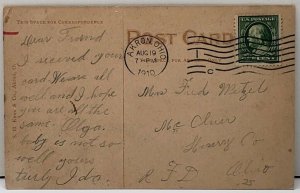 THIS SPACE FOR CORRESPONDENCE
POST CARD
AKRON, OHIO
AUG 19
7 PM
1910
Dear Friend
I received your
card. We are all
well and I hope
you are all the
same. Olga
baby is not so
well yours
truly Ida.
Mrs Fred Metzel
Mc Cluer
Henry Co
R F D Ohio